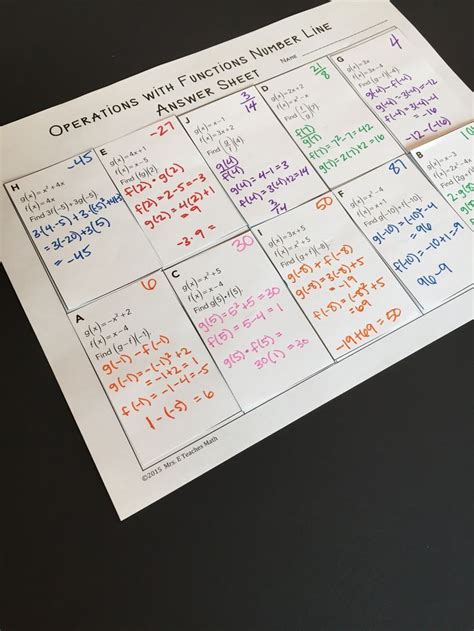 OPERATIONS WITH FUNCTIONS NUMBER LINE
ANSWER SHEET
NAME
H
-45
g(x)=x²+4x
f(x)=4x
Find 3f(-5)+3g(-5)
3(4·-5)+3(-5)²+4·-5)
=3(-20)+3(5)
=-45
E
-27
g(x)=4x+1
f(x)=x-5
f(2)·g(2)
f(2)=2-5=-3
g(2)=4(2)+1
=9
-3·9=
J
3/14
g(x)=x-1
f(x)=3x+2
g(4)
f(4)
g(4)=4-1=3
f(4)=3(4)+2=14
3/14
D
21/8
g(x)=2x+2
f(x)=x²-x
Find
f(7)
g(7)
f(7)=7²-7=42
g(7)=2(7)+2=16
G
4
g(x)=3x
f(x)=3x-4
g(-4)-f(-4)
g(-4)=3(-4)=-12
f(-4)=3(-4)-4
=-16
-12-(-16)
A
6
g(x)=-x²+2
f(x)=x-4
Find (g-f)(-1).
g(-1)-f(-1)
g(-1)=-(-1)²+2
=-1+2=1
f(-1)=-1-4=-5
1-(-5)=6
C
30
g(x)=x²+5
f(x)=x-4
Find g(5)·f(5).
g(5)=5²+5=30
f(5)=5-4=1
g(5)·f(5)=
30(1)=30
I
50
g(x)=3x+5
f(x)=x²+5
Find (g+f)(-8).
g(-8)+f(-8)
g(-8)=3(-8)+5
=-19
f(-8)=(-8)²+5
=69
-19+69=50
F
87
g(x)=x²-4
f(-10)=-10+1=-9
g(-10)=(-10)²-4
=96
96-9
B
©2015 Mrs. E Teaches Math